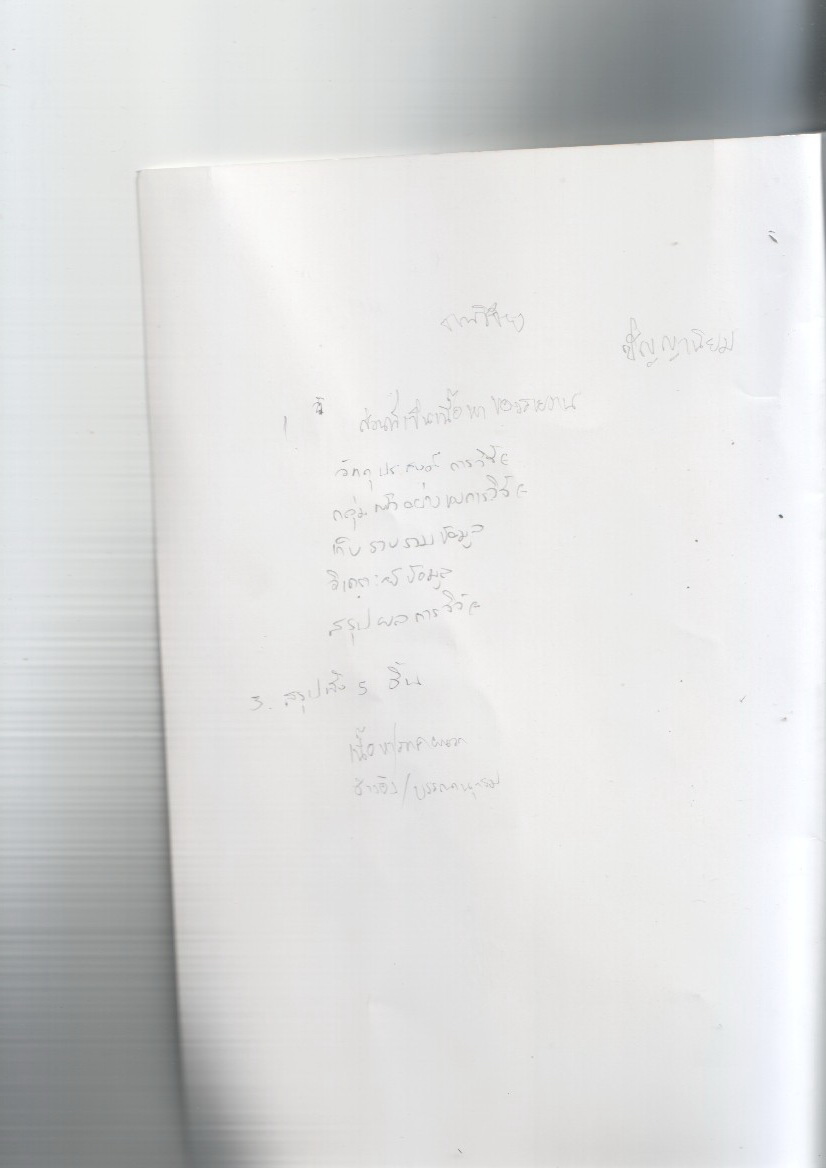 ปัญญานิยม
1 ส่วนที่เป็นเนื้อหาของรายงาน
วัตถุประสงค์การวิจัย
กลุ่มตัวอย่างในการวิจัย
เก็บรวบรวมข้อมูล
วิเคราะห์ข้อมูล
สรุปผลการวิจัย
3. สรุปทั้ง 5 ขั้น
อ้างอิง/บรรณานุกรม